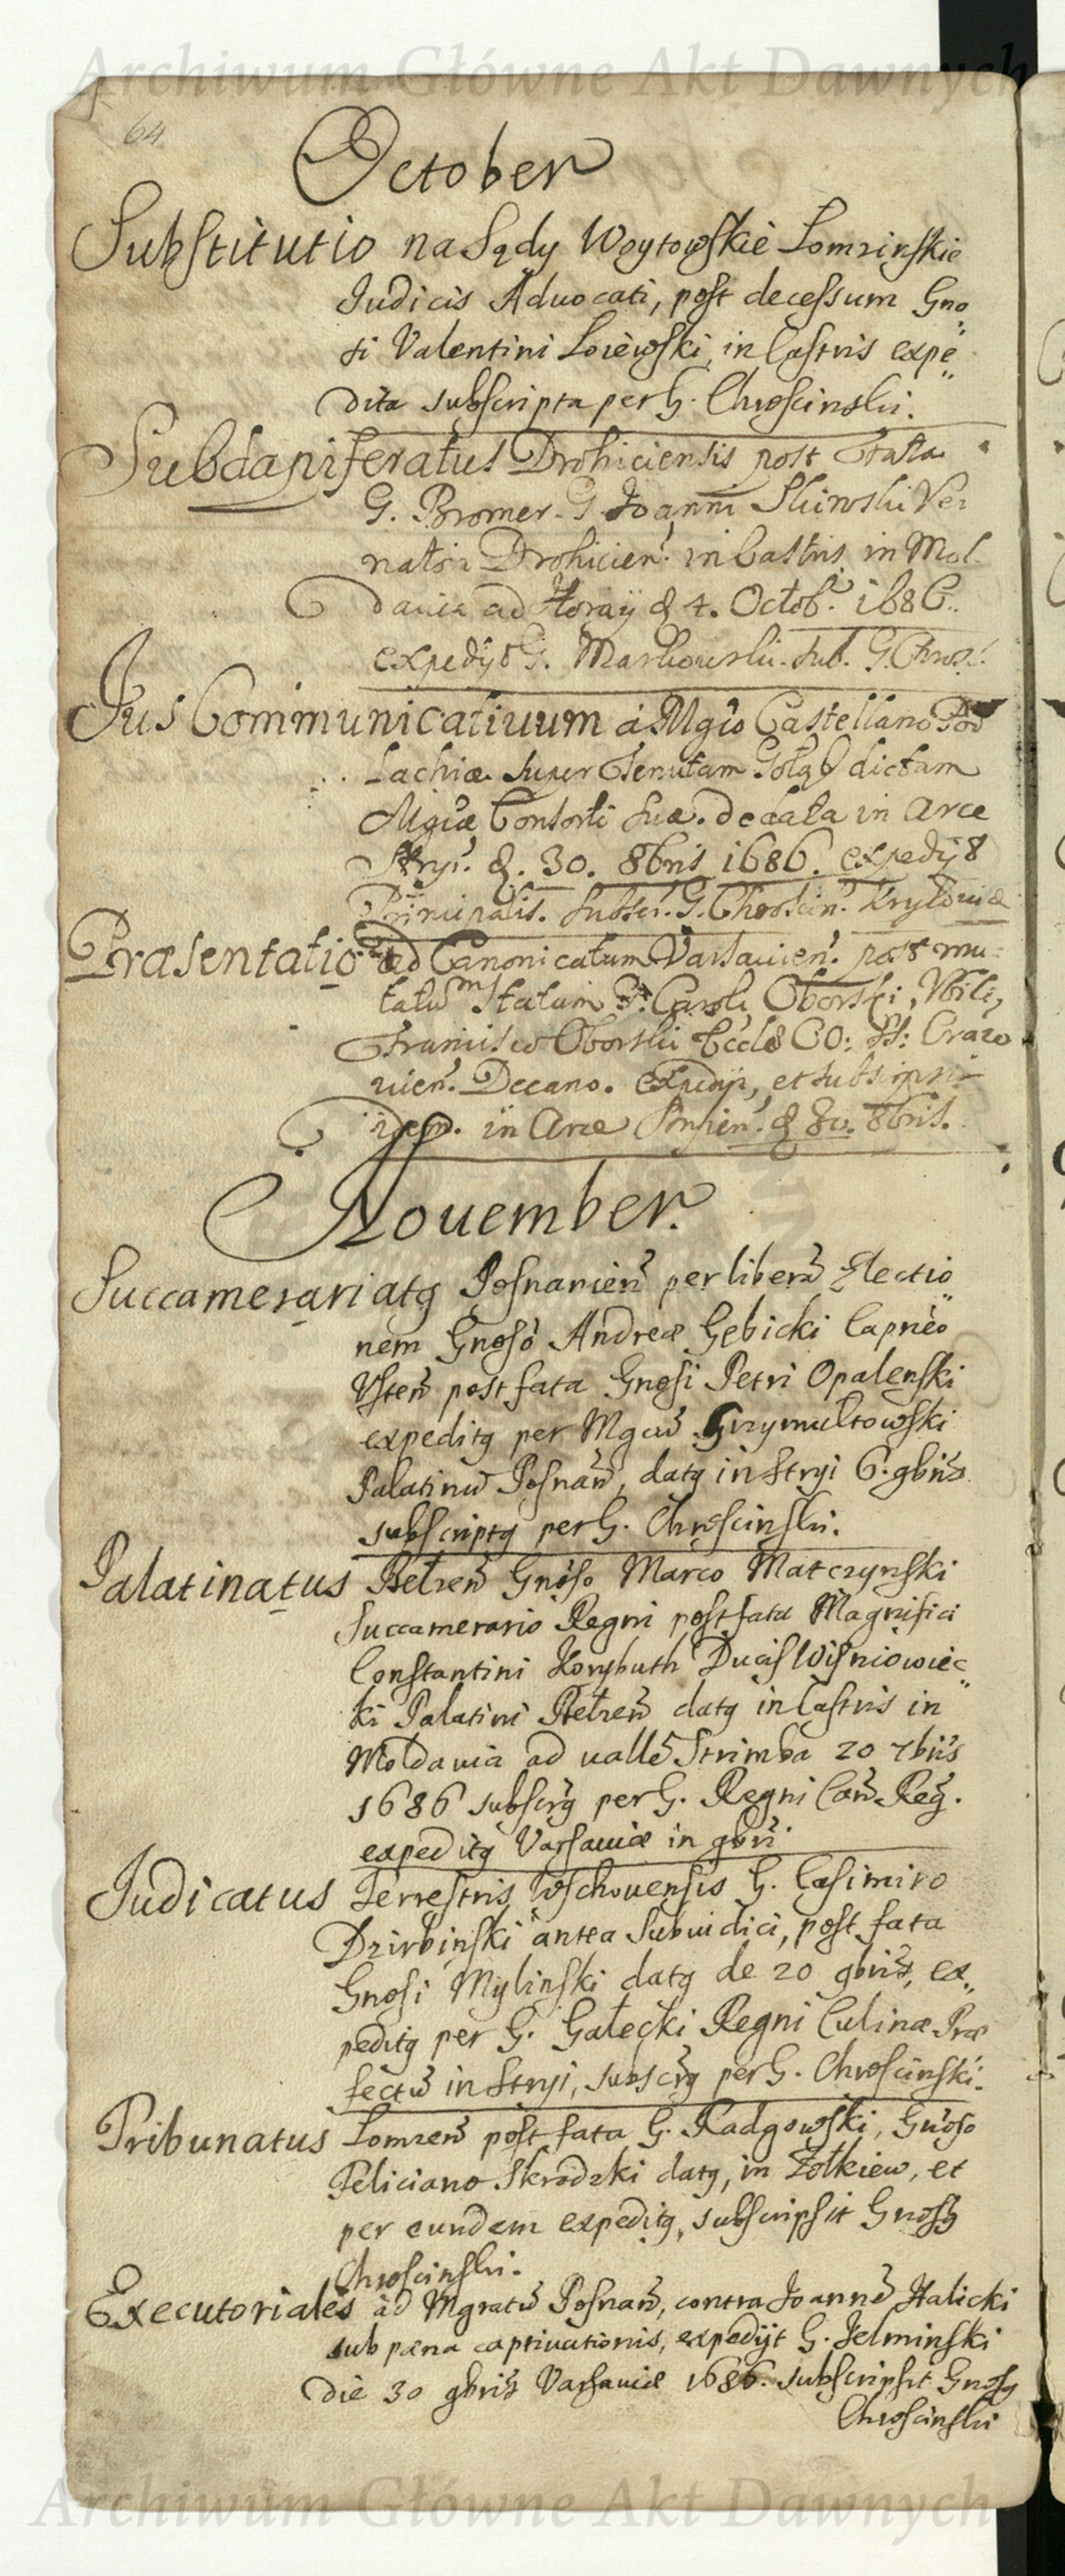 Archiwum Główne Akt Dawnych
64
October
Substitutio na Sądy Woytowskie Lomzinskie
Judicis Advocati, post decessum Gno
si Valentini in Castris expe
dita subscripta per G. Chroscinski.
Subdapiferatus Drohiciensis post Fata
G. Bromer G. Joanni Ve
natori Drohicien: in Castris in Mol
davia ad d 4. Octob: 1686.
expedijt G. Markowski. sub. G. Chros:
Jus Communicativum a Mgco Castellano Pod
lachiæ super Tenutam Gołąb dictam
Mgcæ Consorti suæ. de data in Arce
Stryi: d. 30. 8bris 1686. expedijt
Principalis. subscr. G. Choscin:
Præsentatio ad Canonicatum Varsavien: post mu
tatum statum Caroli Oborski, Vbili,
Francisco Oborski Eccle Craco
vien: Decano. expedijt, et subscripsit
idem. in Arce d 30. 8bris.
November.
Succamerariatq Posnanien per liberā Electio
nem Gnoso Andreæ Gębicki Capneo
Vsten post fata Gnosi Petri Opalenski
expeditq per Mgcū Grzymultowski
Palatinū Posnan, datq in Stryi 6. 9bris
subscriptq per G. Chroscinski.
Palatinatus Belzen Gnoso Marco Matczynski
Succamerario Regni post fata Magnifici
Constantini Korybuth Ducis Wisniowiec
ki Palatini Belzen datq in Castris in
Moldavia ad vallē Strimba 20 7bris
1686 subscrq per G. Regni Can. Reg.
expeditq Varsaviæ in 9bri.
Judicatus Terrestris Wschovensis G. Casimiro
Dzirbinski antea Subiudici, post fata
Gnosi Mylinski datq de 20 9bris, ex
peditq per G. Gałecki Regni Culinæ Præ
fectū in Stryi, subscrq per G. Chroscinski.
Tribunatus Lomzen post fata G. Radgowski, Gnoso
Feliciano Skrodzki datq, in Zołkiew, et
per eundem expeditq, subscripsit Gnosq
Chroscinski.
Executoriales ad Mgratū Posnan, contra Joannē Halicki
sub pæna captivationis, expedijt G. Jelminski
die 30 9bris Varsaviæ 1686. subscripsit Gnosq
Chroscinski
Archiwum Główne Akt Dawnych